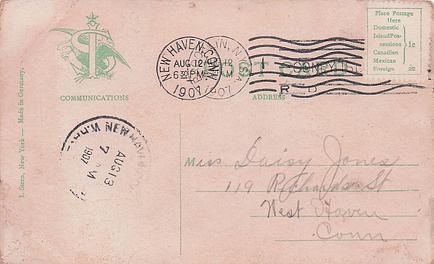 Place Postage
Here
Domestic
Island Pos-
sessions 1c
Canadian
Mexican
Foreign 2c
NEW HAVEN, CONN.
AUG 12
6 30 PM
1907
COMMUNICATIONS
ADDRESS
I. Stern, New York — Made in Germany.
NEW HAVEN
AUG 13
7 AM
1907
Miss Daisy Jones
119 Richards St
West Haven
Conn